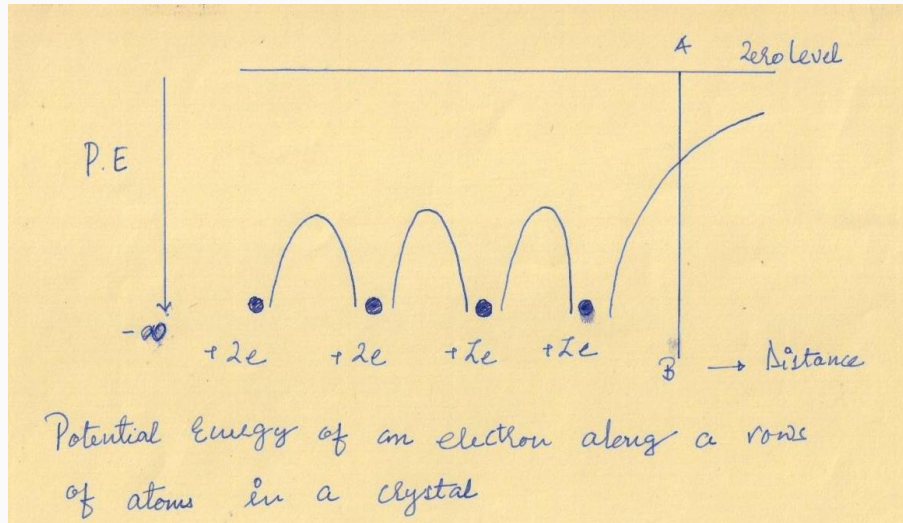 A
Zero level
P.E
-∞
+Ze +Ze +Ze +Ze
B → Distance
Potential Energy of an electron along a rows
of atoms in a crystal